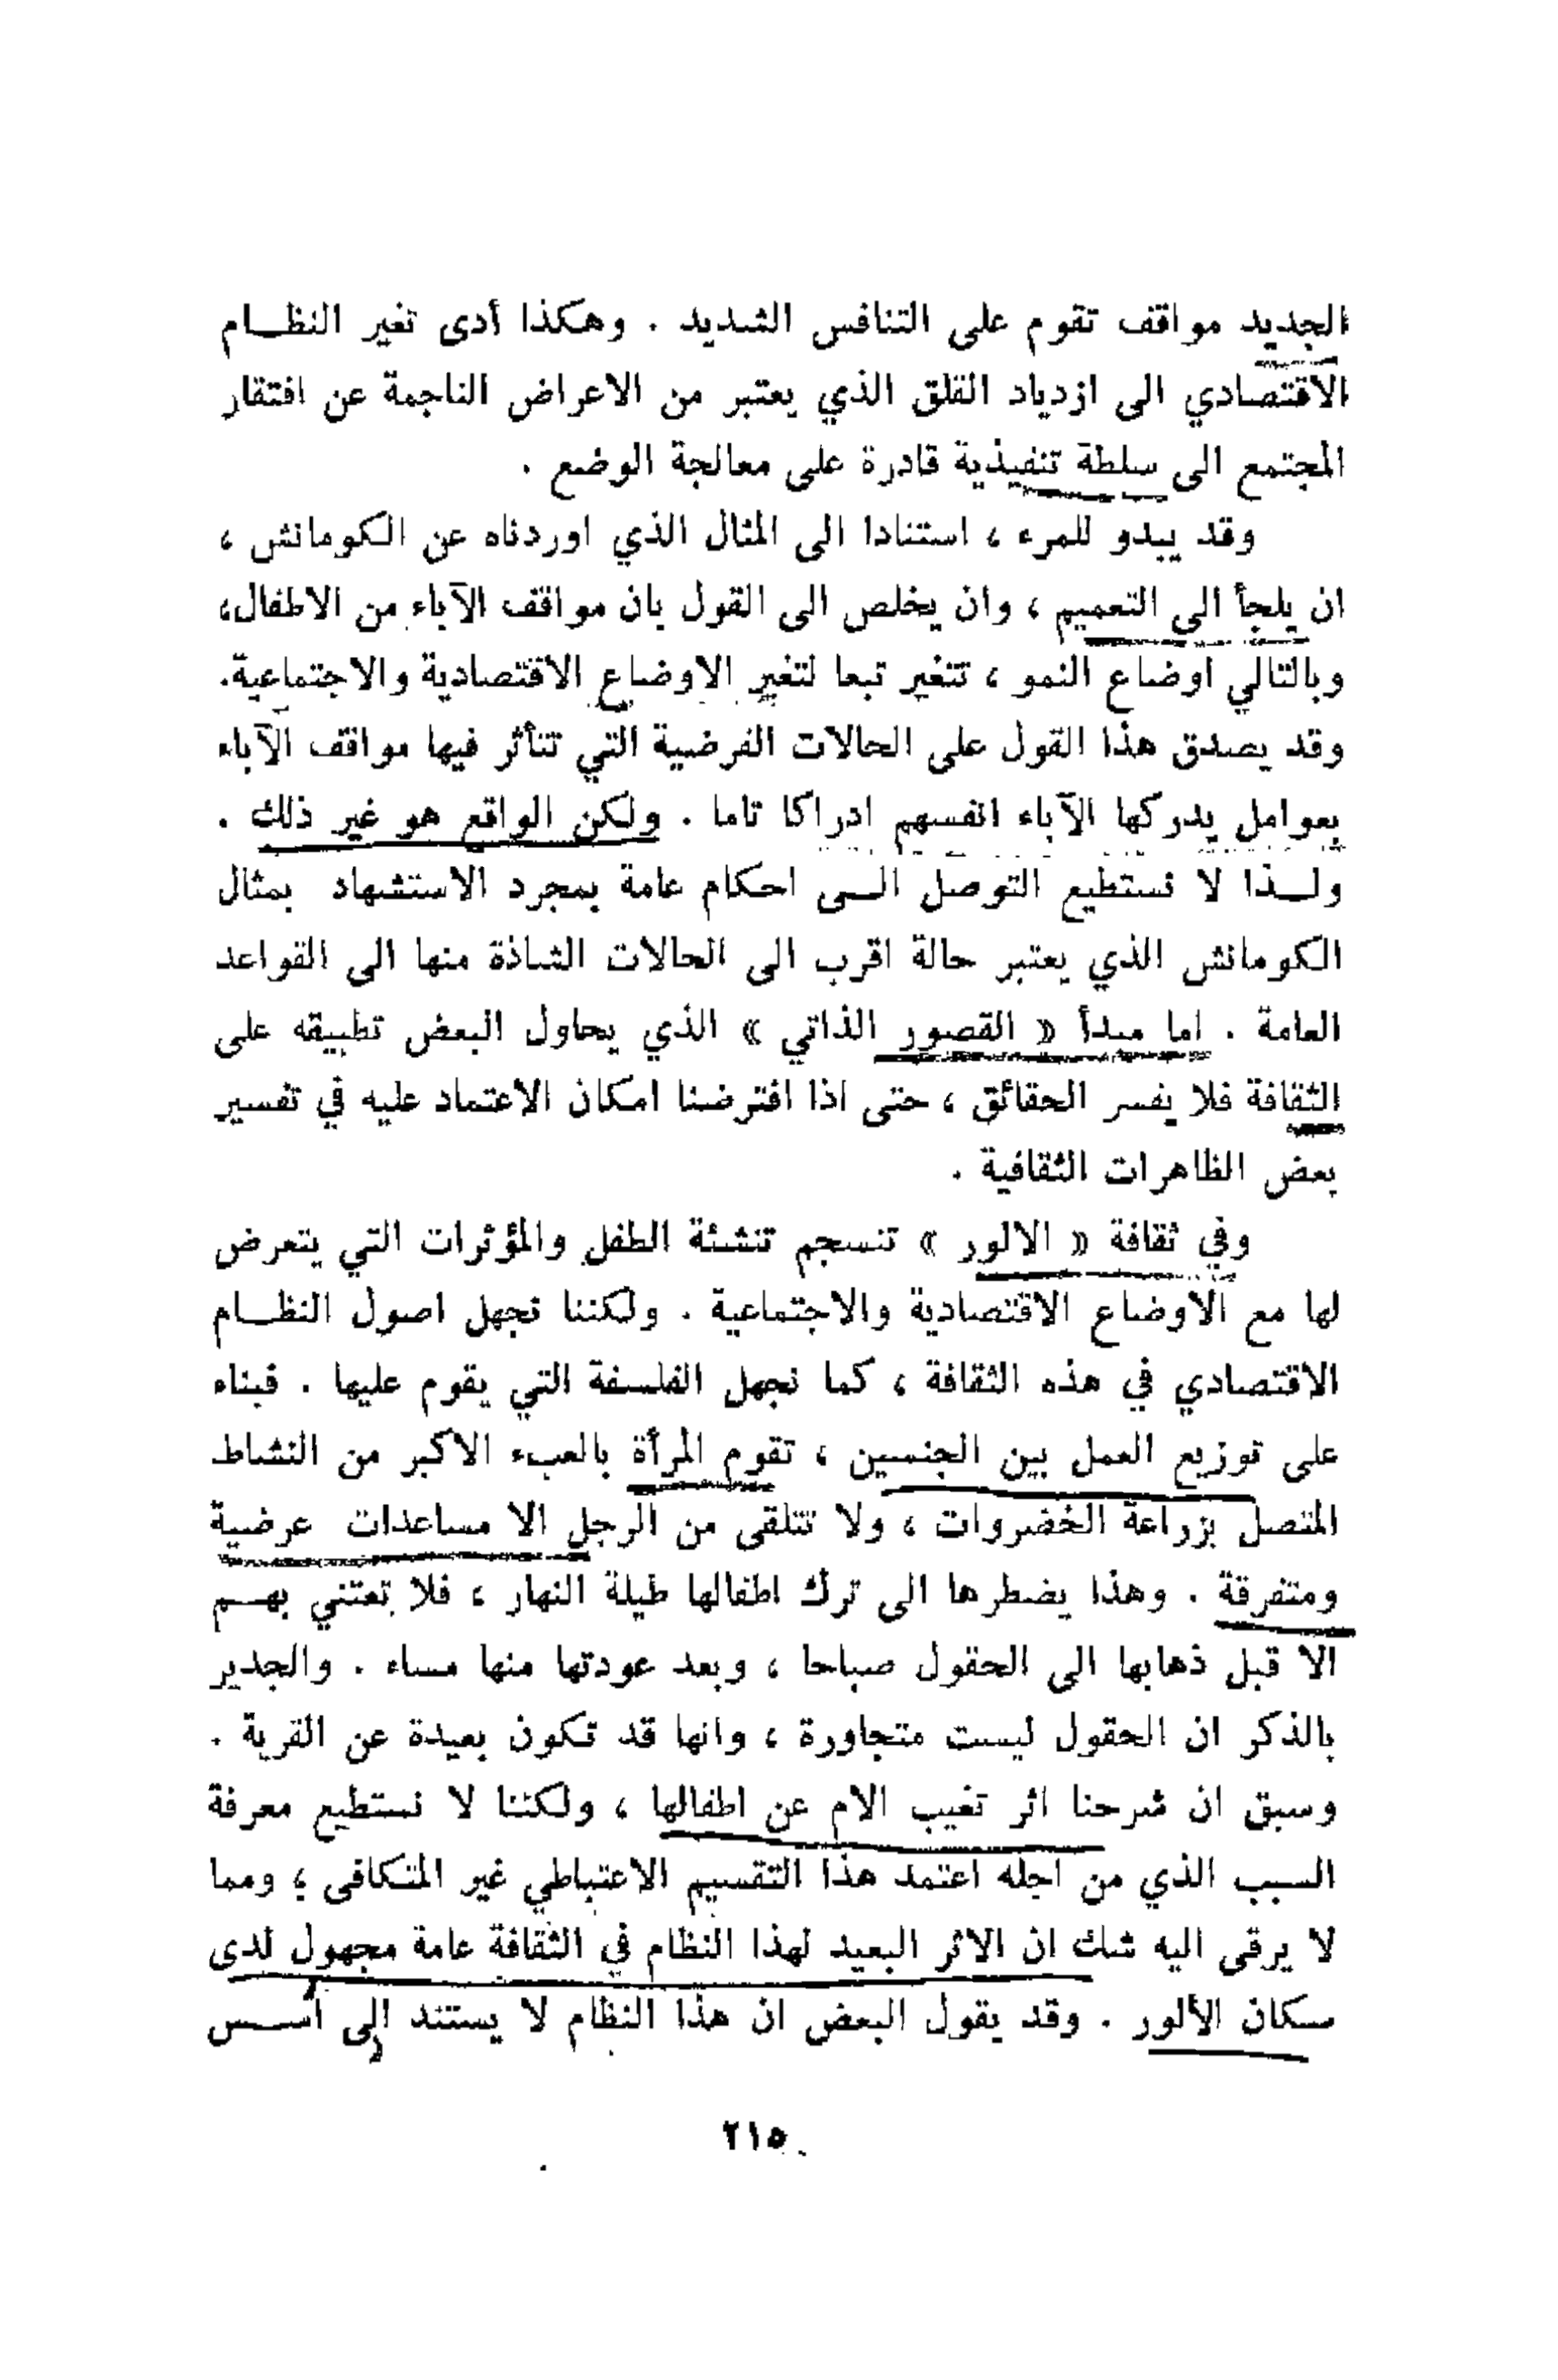 الجديد مواقف تقوم على التنافس الشديد . وهكذا أدى تغير النظـــام
الاقتصادي الى ازدياد القلق الذي يعتبر من الاعراض الناجمة عن افتقار
المجتمع الى سلطة تنفيذية قادرة على معالجة الوضع .
وقد يبدو للمرء ، استنادا الى المثال الذي اوردناه عن الكومانش ،
ان يلجأ الى التعميم ، وان يخلص الى القول بان مواقف الآباء من الاطفال،
وبالتالي اوضاع النمو ، تتغير تبعا لتغير الاوضاع الاقتصادية والاجتماعية.
وقد يصدق هذا القول على الحالات الفرضية التي تتأثر فيها مواقف الآباء
بعوامل يدركها الآباء انفسهم ادراكا تاما . ولكن الواقع هو غير ذلك .
ولــذا لا نستطيع التوصل الــى احكام عامة بمجرد الاستشهاد بمثال
الكومانش الذي يعتبر حالة اقرب الى الحالات الشاذة منها الى القواعد
العامة . اما مبدأ « القصور الذاتي » الذي يحاول البعض تطبيقه على
الثقافة فلا يفسر الحقائق ، حتى اذا افترضنا امكان الاعتماد عليه في تفسير
بعض الظاهرات الثقافية .
وفي ثقافة « الالور » تنسجم تنشئة الطفل والمؤثرات التي يتعرض
لها مع الاوضاع الاقتصادية والاجتماعية . ولكننا نجهل اصول النظـــام
الاقتصادي في هذه الثقافة ، كما نجهل الفلسفة التي يقوم عليها . فبناء
على توزيع العمل بين الجنسين ، تقوم المرأة بالعبء الاكبر من النشاط
المتصل بزراعة الخضروات ، ولا تتلقى من الرجل الا مساعدات عرضية
ومتفرقة . وهذا يضطرها الى ترك اطفالها طيلة النهار ، فلا تعتني بهــم
الا قبل ذهابها الى الحقول صباحا ، وبعد عودتها منها مساء . والجدير
بالذكر ان الحقول ليست متجاورة ، وانها قد تكون بعيدة عن القرية .
وسبق ان شرحنا اثر تغيب الام عن اطفالها ، ولكننا لا نستطيع معرفة
السبب الذي من اجله اعتمد هذا التقسيم الاعتباطي غير المتكافى ؛ ومما
لا يرقى اليه شك ان الاثر البعيد لهذا النظام في الثقافة عامة مجهول لدى
سكان الألور . وقد يقول البعض ان هذا النظام لا يستند إلى أســس
٢١٥